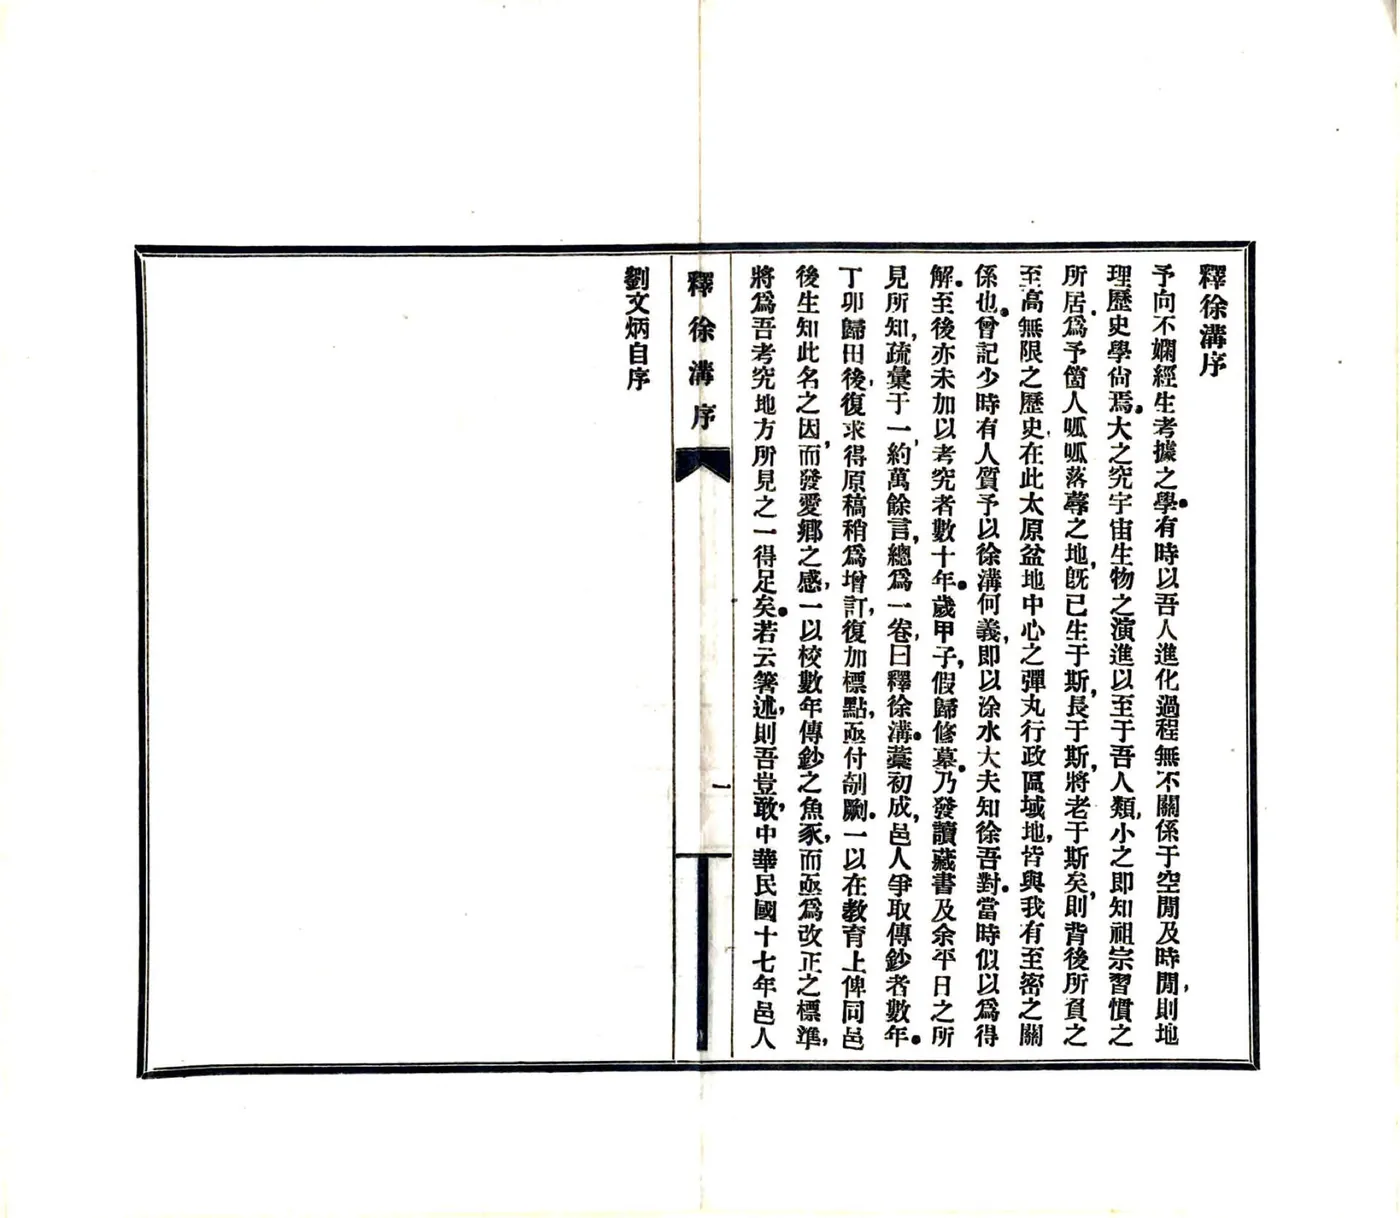 釋徐溝序
予向不嫻經生考據之學。有時以吾人進化過程無不關係于空閒及時閒,則地
理歷史學尙焉。大之究宇宙生物之演進以至于吾人類,小之即知祖宗習慣之
所居,爲予箇人呱呱落蓐之地,旣已生于斯,長于斯,將老于斯矣,則背後所負之
至高無限之歷史,在此太原盆地中心之彈丸行政區域地,皆與我有至密之關
係也。曾記少時有人質予以徐溝何義,即以涂水大夫知徐吾對。當時似以爲得
解。至後亦未加以考究者數十年。歲甲子,假歸修墓。乃發讀藏書及余平日之所
見所知,疏彙于一,約萬餘言,總爲一卷,曰釋徐溝。藁初成,邑人爭取傳鈔者數年。
丁卯歸田後,復求得原稿稍爲增訂,復加標點,亟付剞劂。一以在教育上俾同邑
後生知此名之因,而發愛鄉之感,一以校數年傳鈔之魚豕,而亟爲改正之標準,
將爲吾考究地方所見之一得足矣。若云箸述,則吾豈敢,中華民國十七年邑人
釋徐溝序
一
劉文炳自序